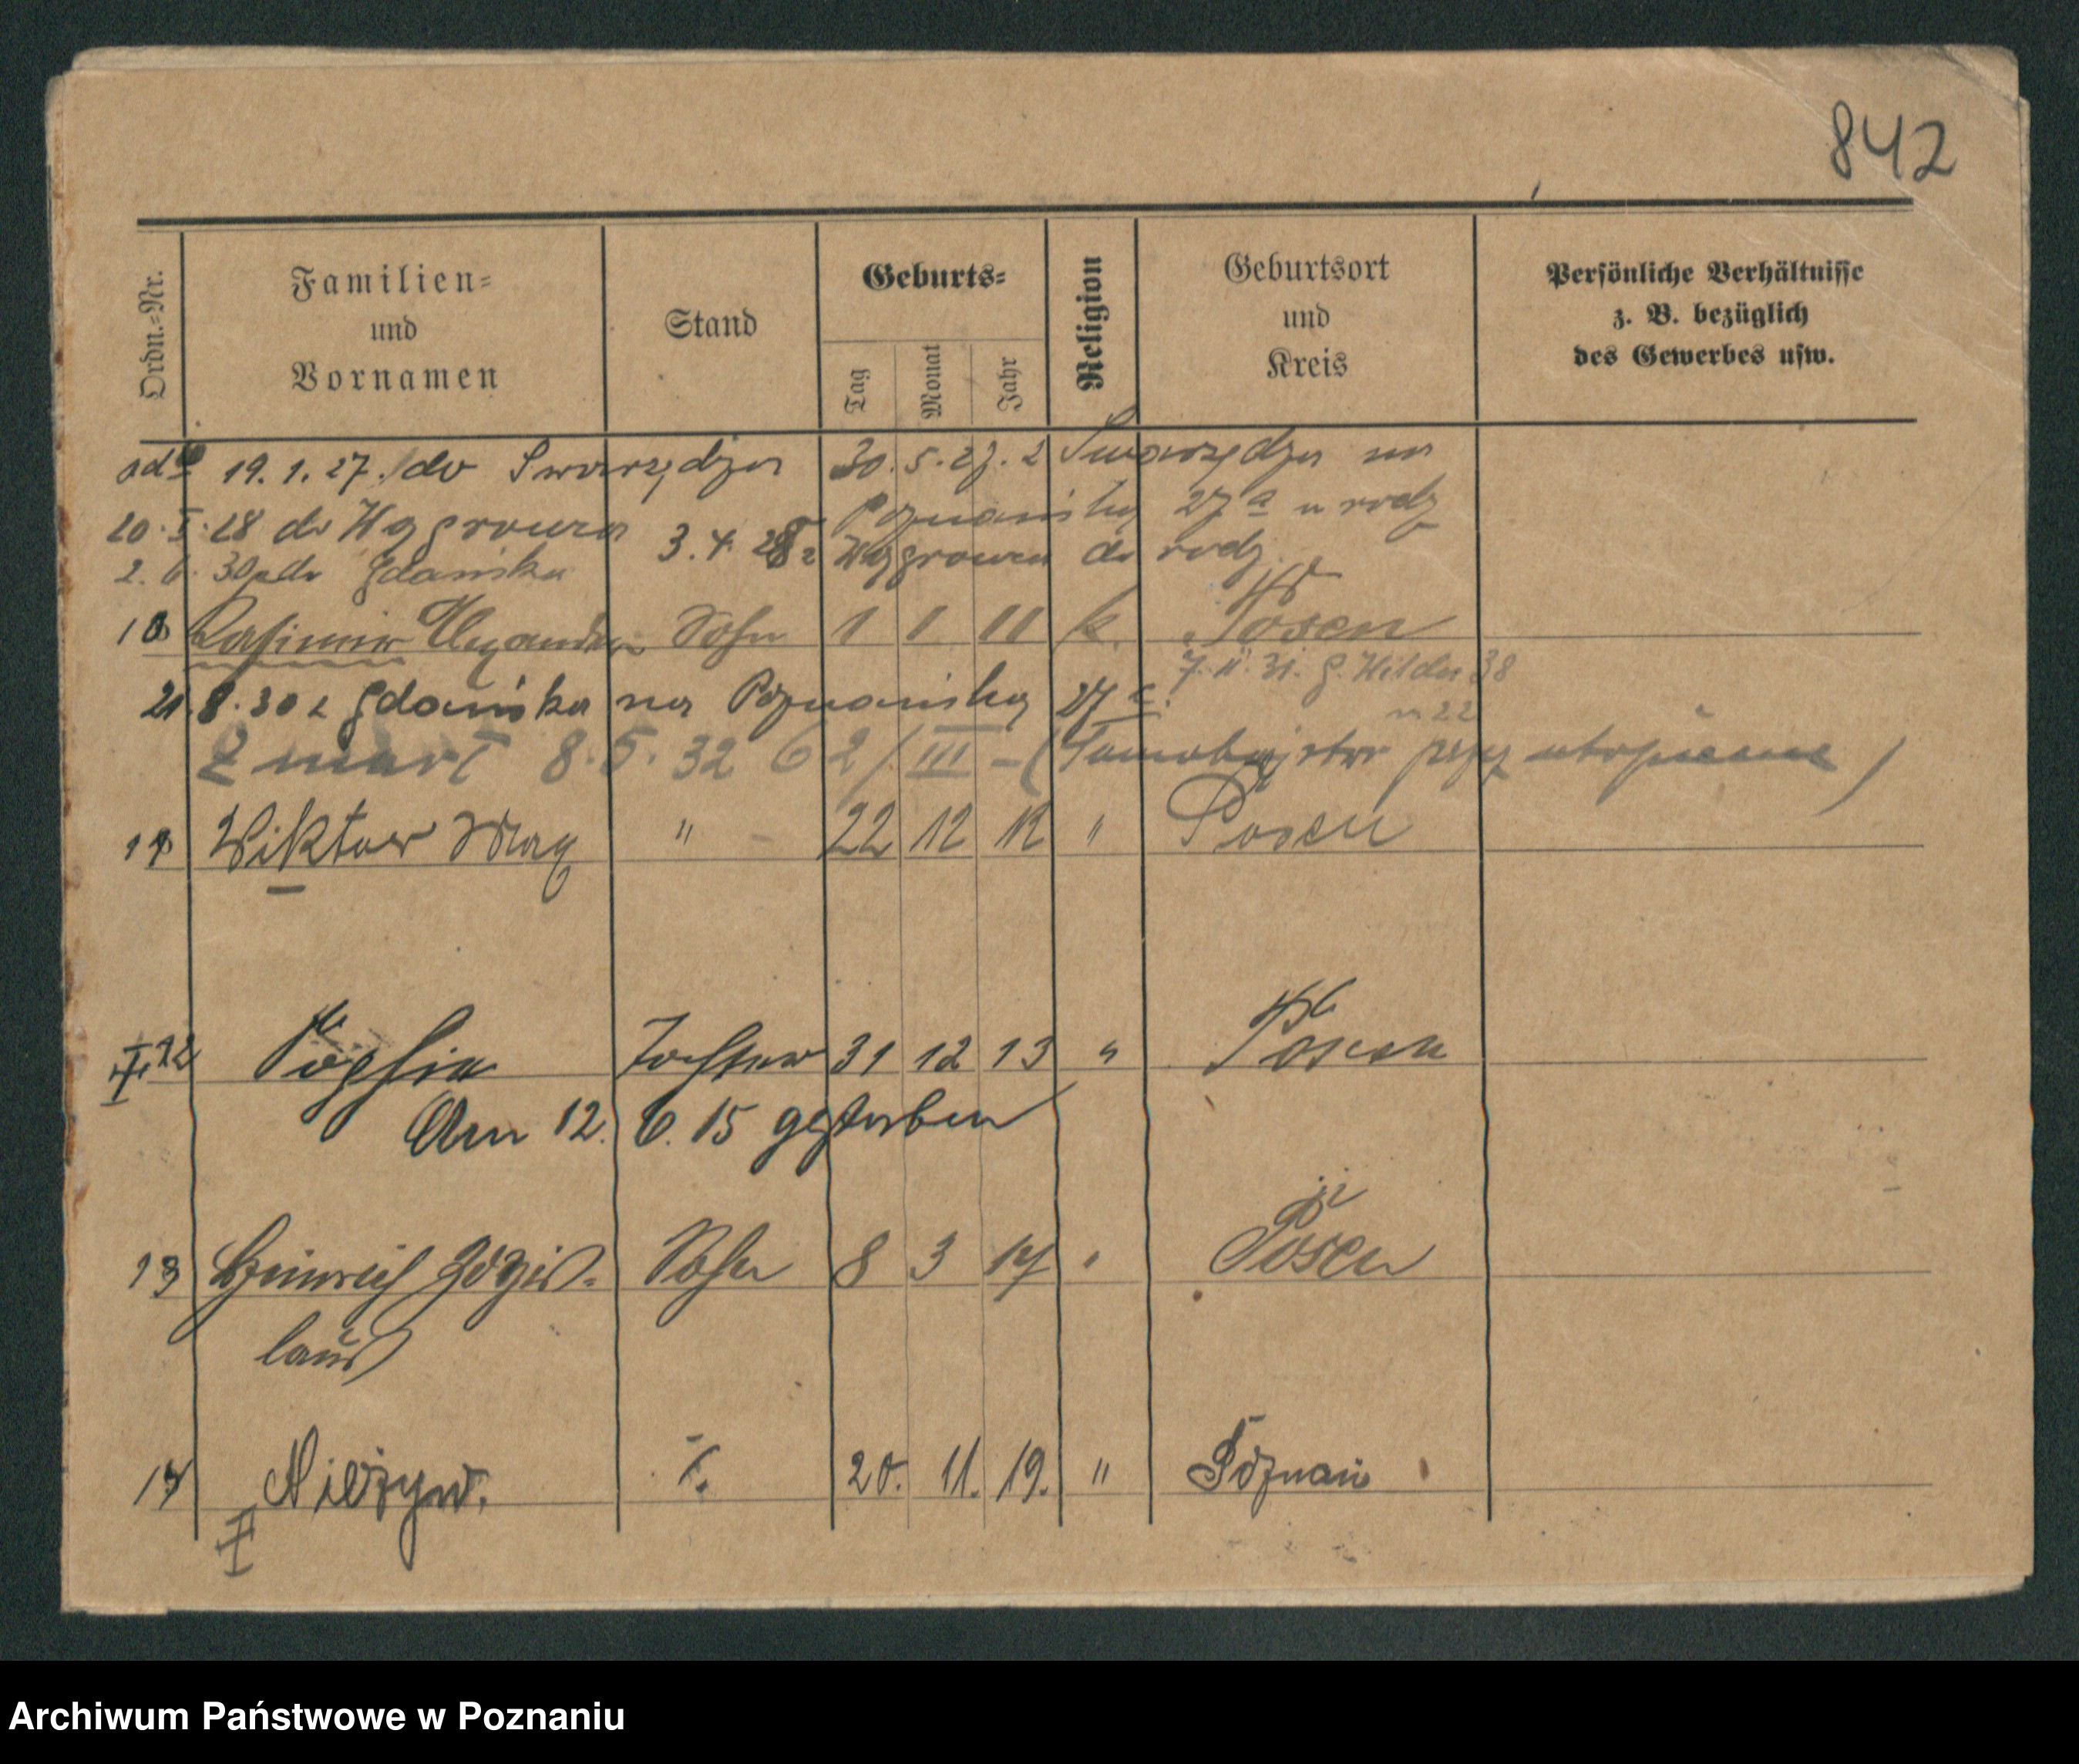 842
Ordn.=Nr.
Familien=
und
Vornamen
Stand
Geburts=
Tag
Monat
Jahr
Religion
Geburtsort
und
Kreis
Persönliche Verhältnisse
z. B. bezüglich
des Gewerbes usw.
19.1.27. do Swarzędza 30.5.27. z Swarzędza na
20.I.28 do Wągrowca Poznańska 27a u rodz
3.4.28 z Wągrowca do rodz.
2.6.30 do Gdańska
10 Kasimir Alexander Sohn 1 1 11 k. Posen
7.11.31. G. Wilda 38
m 22
21.8.30 z Gdańska na Poznańską 27
Zmarł 8.5.32 62/III - (Samobójstwo przez utopienie)
11 Wiktor Max " 22 12 12 " Posen
12 Sophia Tochter 31 12 13 " Posen
Am 12. 6. 15 gestorben
13 Heinrich Zdzis- Sohn 8 3 17 " Posen
laus
14 Nieżyw. 20. 11. 19. " Poznań
II
Archiwum Państwowe w Poznaniu